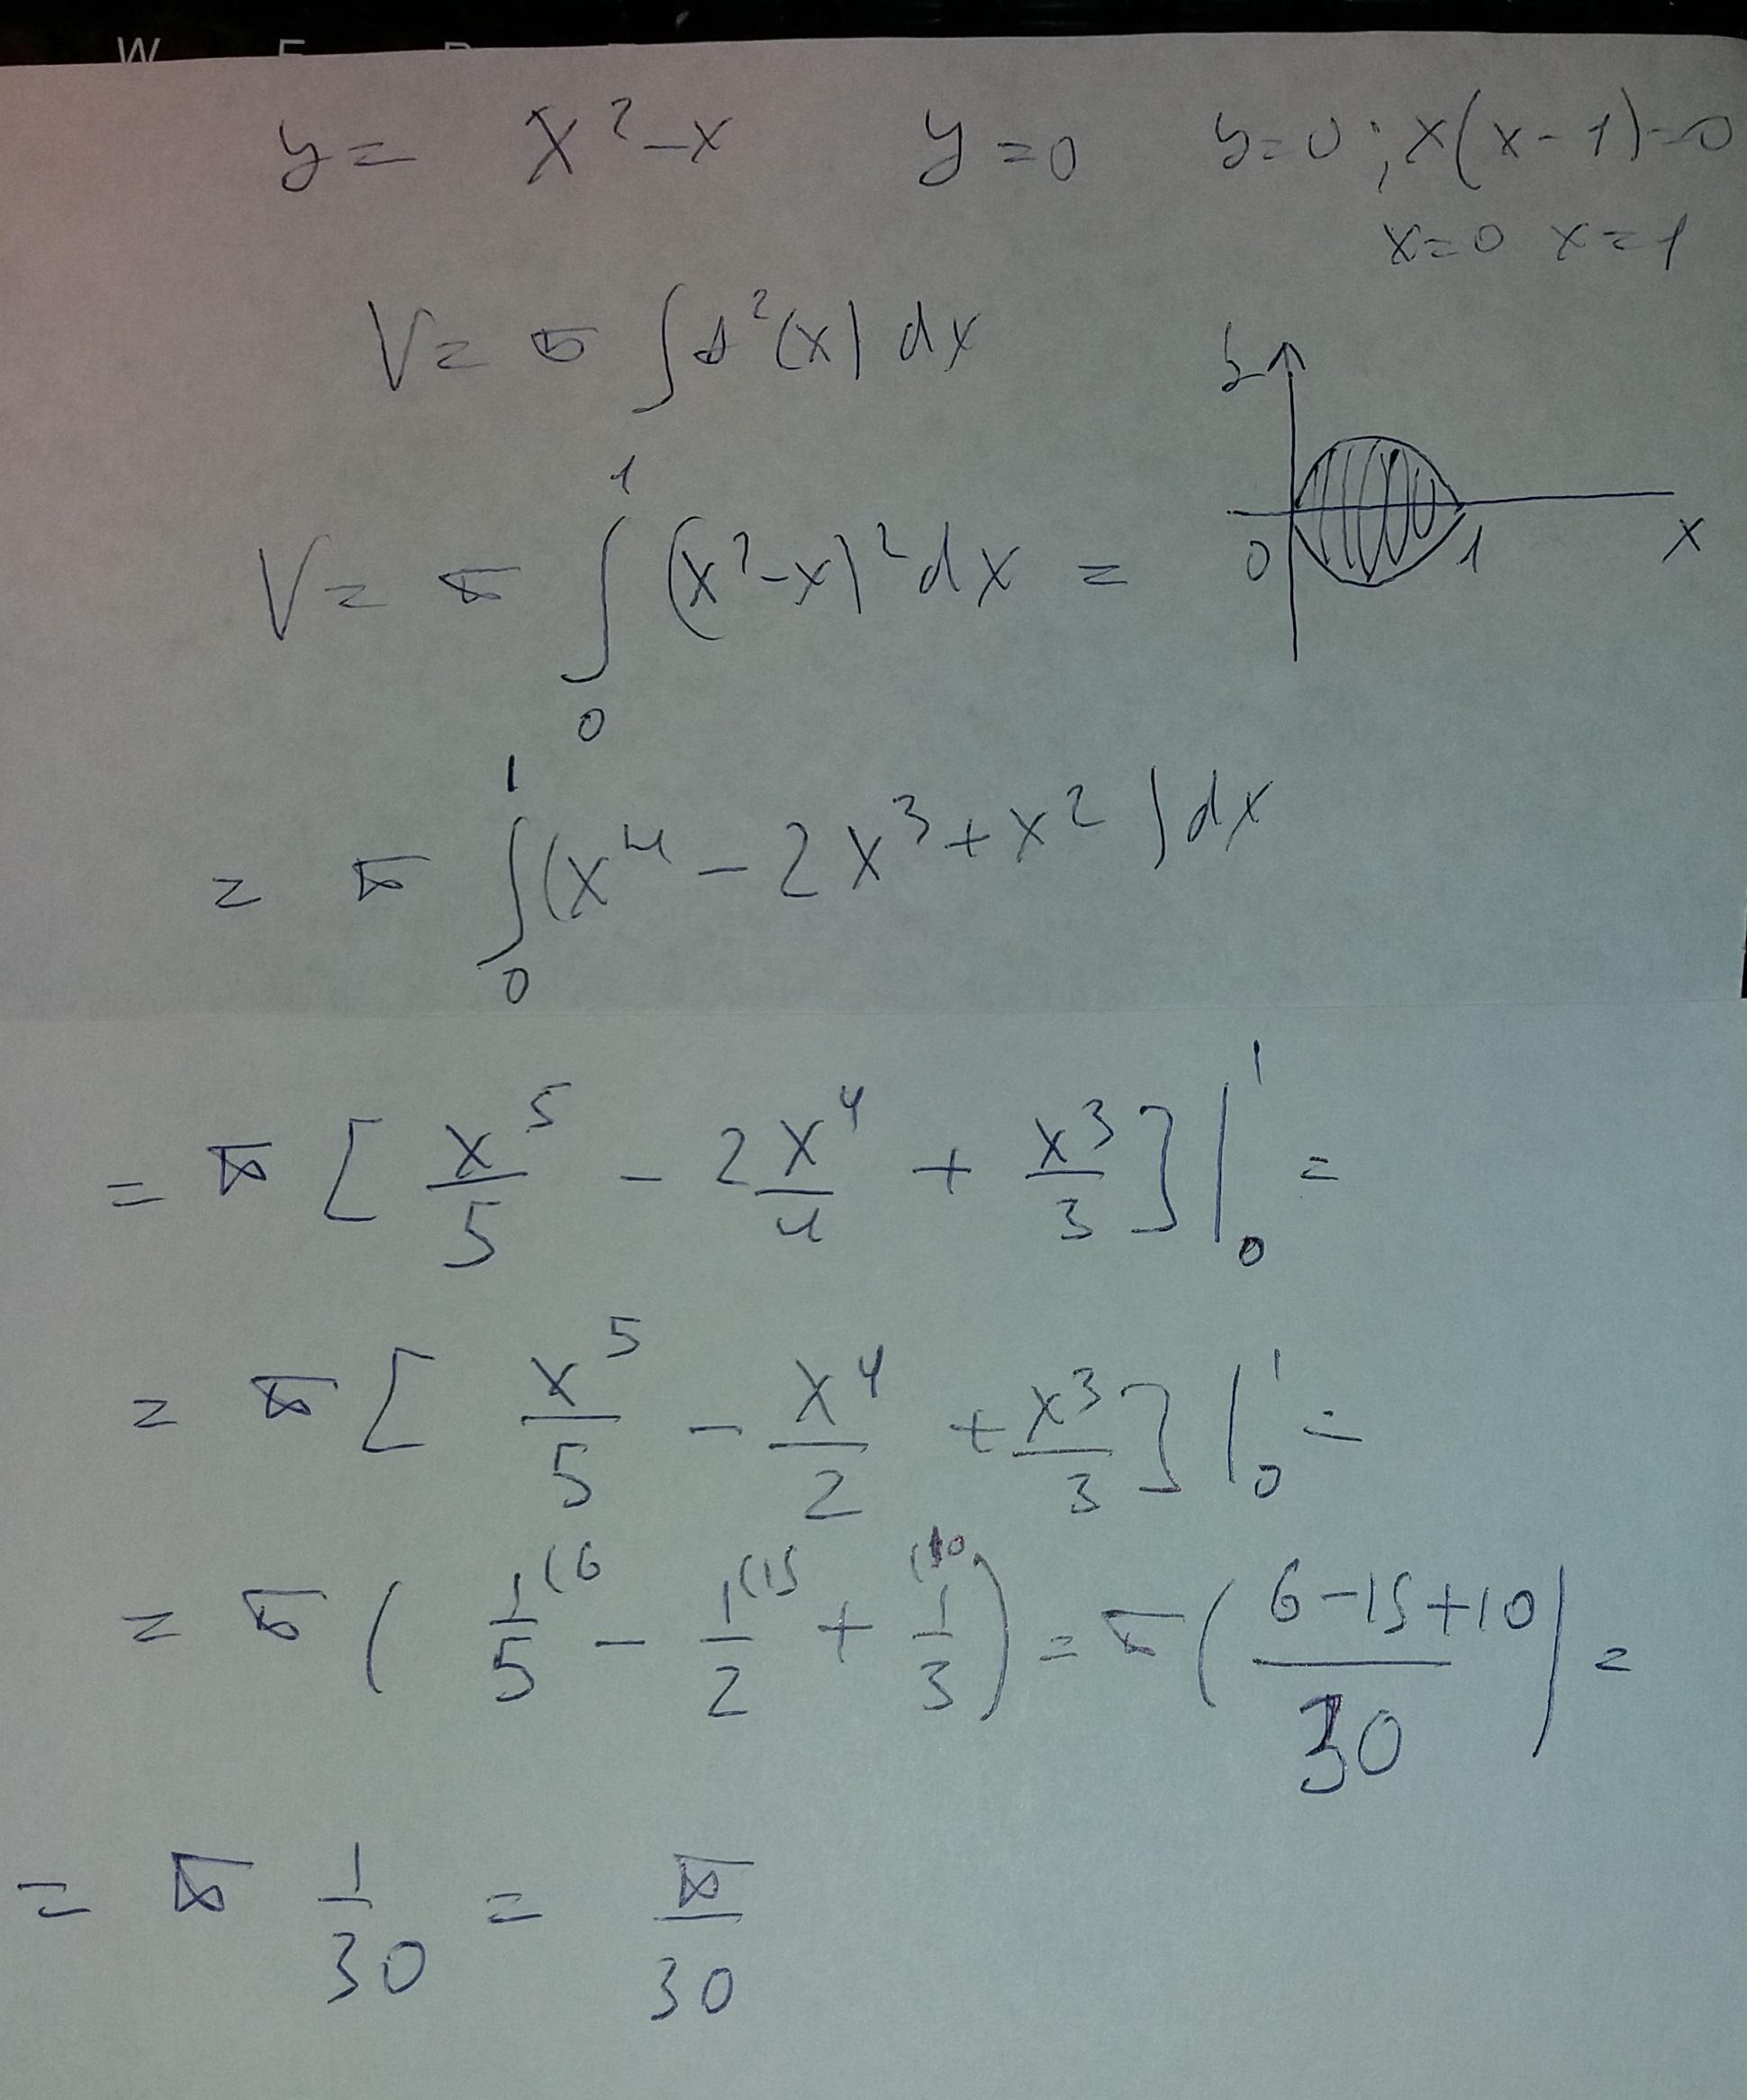 W E R
y = x² - x y = 0 y = 0 ; x(x - 1) = 0
x = 0 x = 1
V = π ∫ f²(x) dx
y
0 1 x
V = π ∫₀¹ (x² - x)² dx =
= π ∫₀¹ (x⁴ - 2x³ + x²) dx
= π [ x⁵/5 - 2 x⁴/4 + x³/3 ] |₀¹ =
= π [ x⁵/5 - x⁴/2 + x³/3 ] |₀¹ =
= π ( 1/5 (6 - 1/2 (15 + 1/3 (10 ) = π ( (6 - 15 + 10)/30 ) =
= π 1/30 = π/30